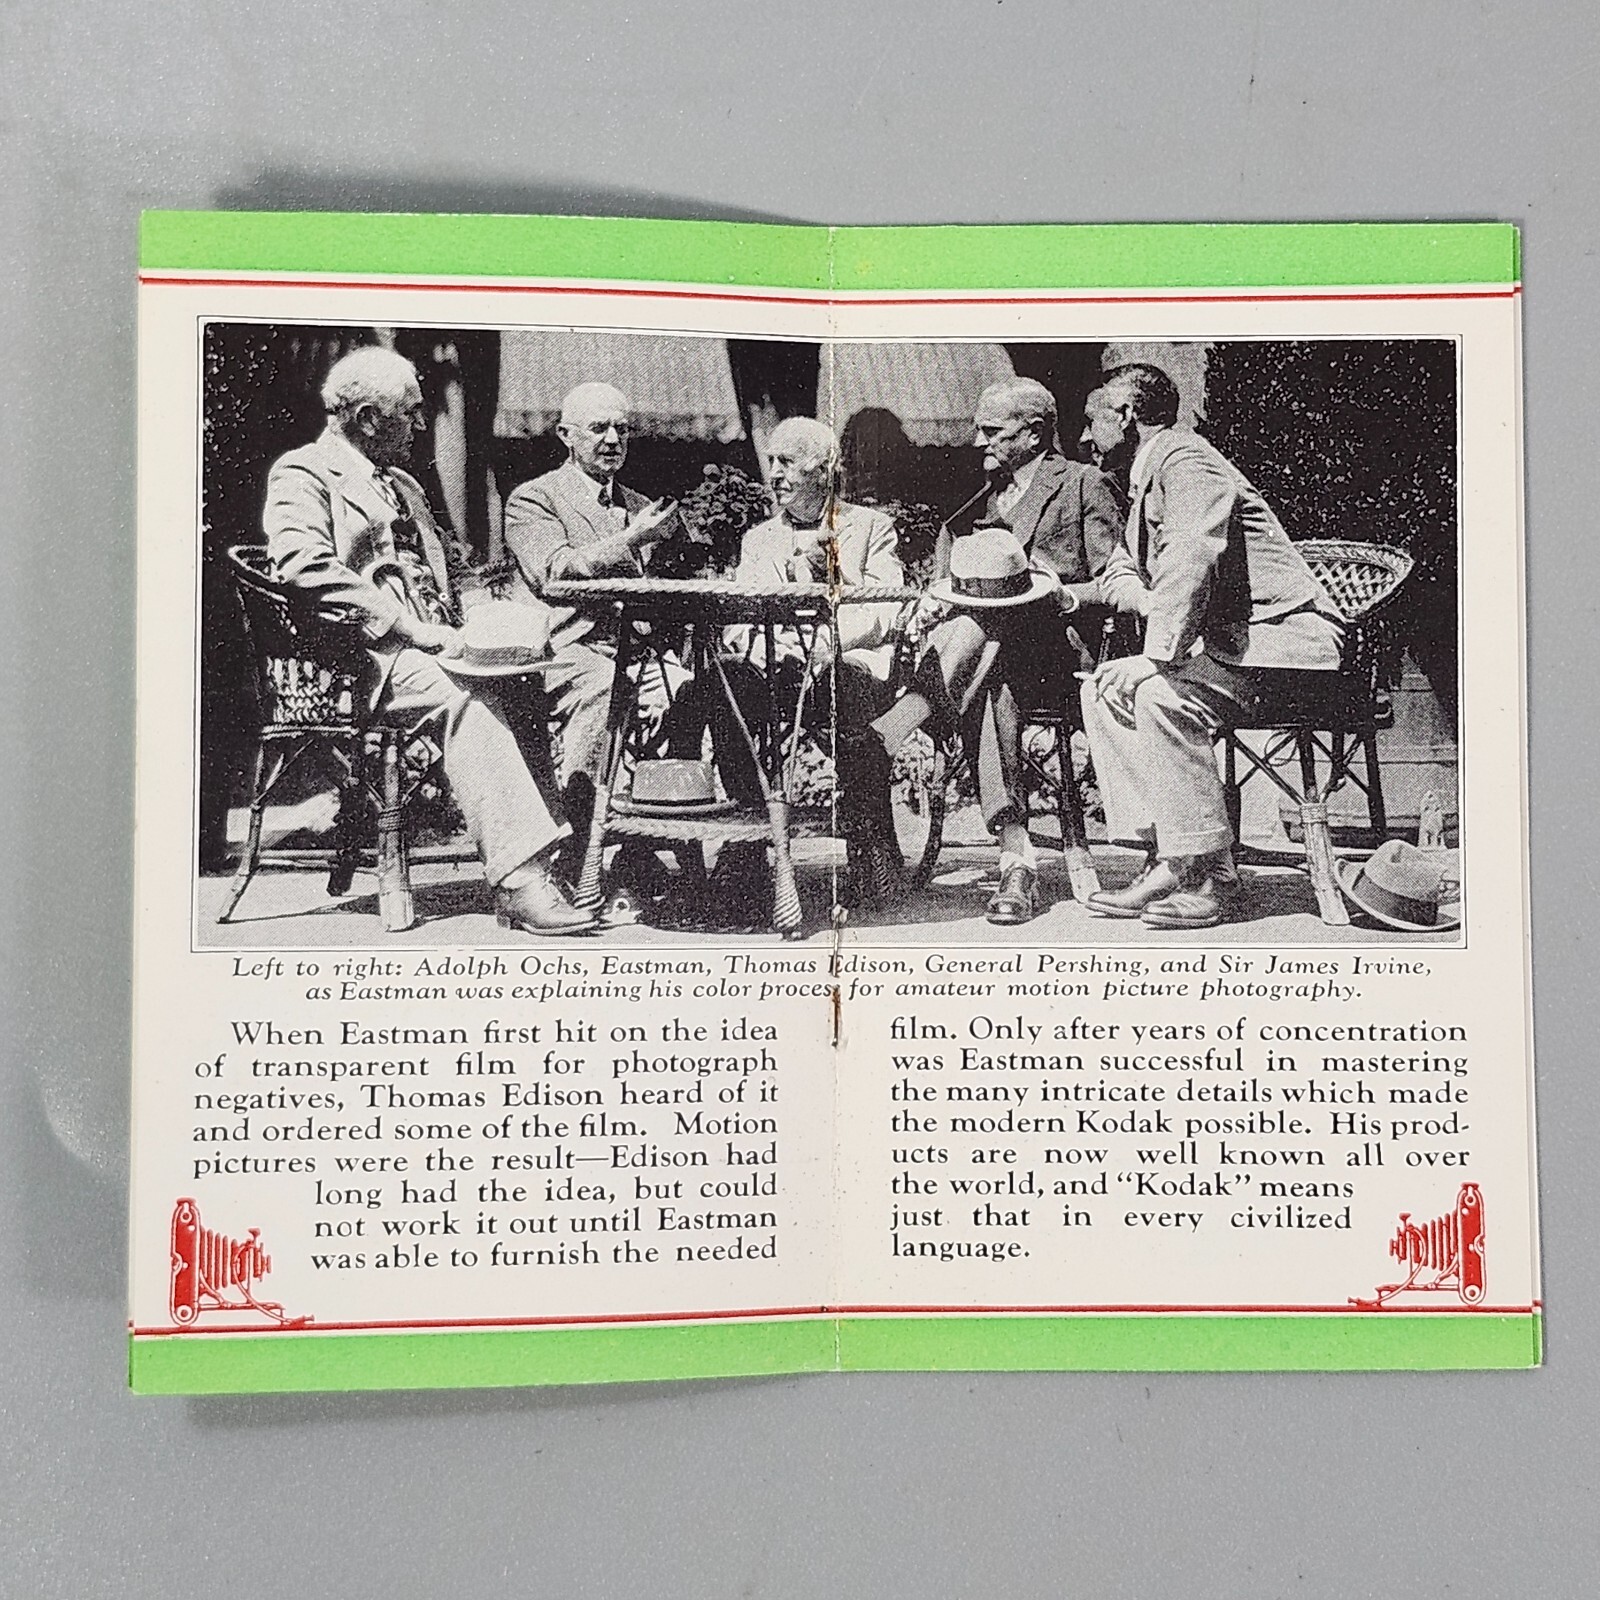 Left to right: Adolph Ochs, Eastman, Thomas Edison, General Pershing, and Sir James Irvine,
as Eastman was explaining his color process for amateur motion picture photography.
When Eastman first hit on the idea
of transparent film for photograph
negatives, Thomas Edison heard of it
and ordered some of the film. Motion
pictures were the result—Edison had
long had the idea, but could
not work it out until Eastman
was able to furnish the needed
film. Only after years of concentration
was Eastman successful in mastering
the many intricate details which made
the modern Kodak possible. His prod-
ucts are now well known all over
the world, and “Kodak” means
just that in every civilized
language.